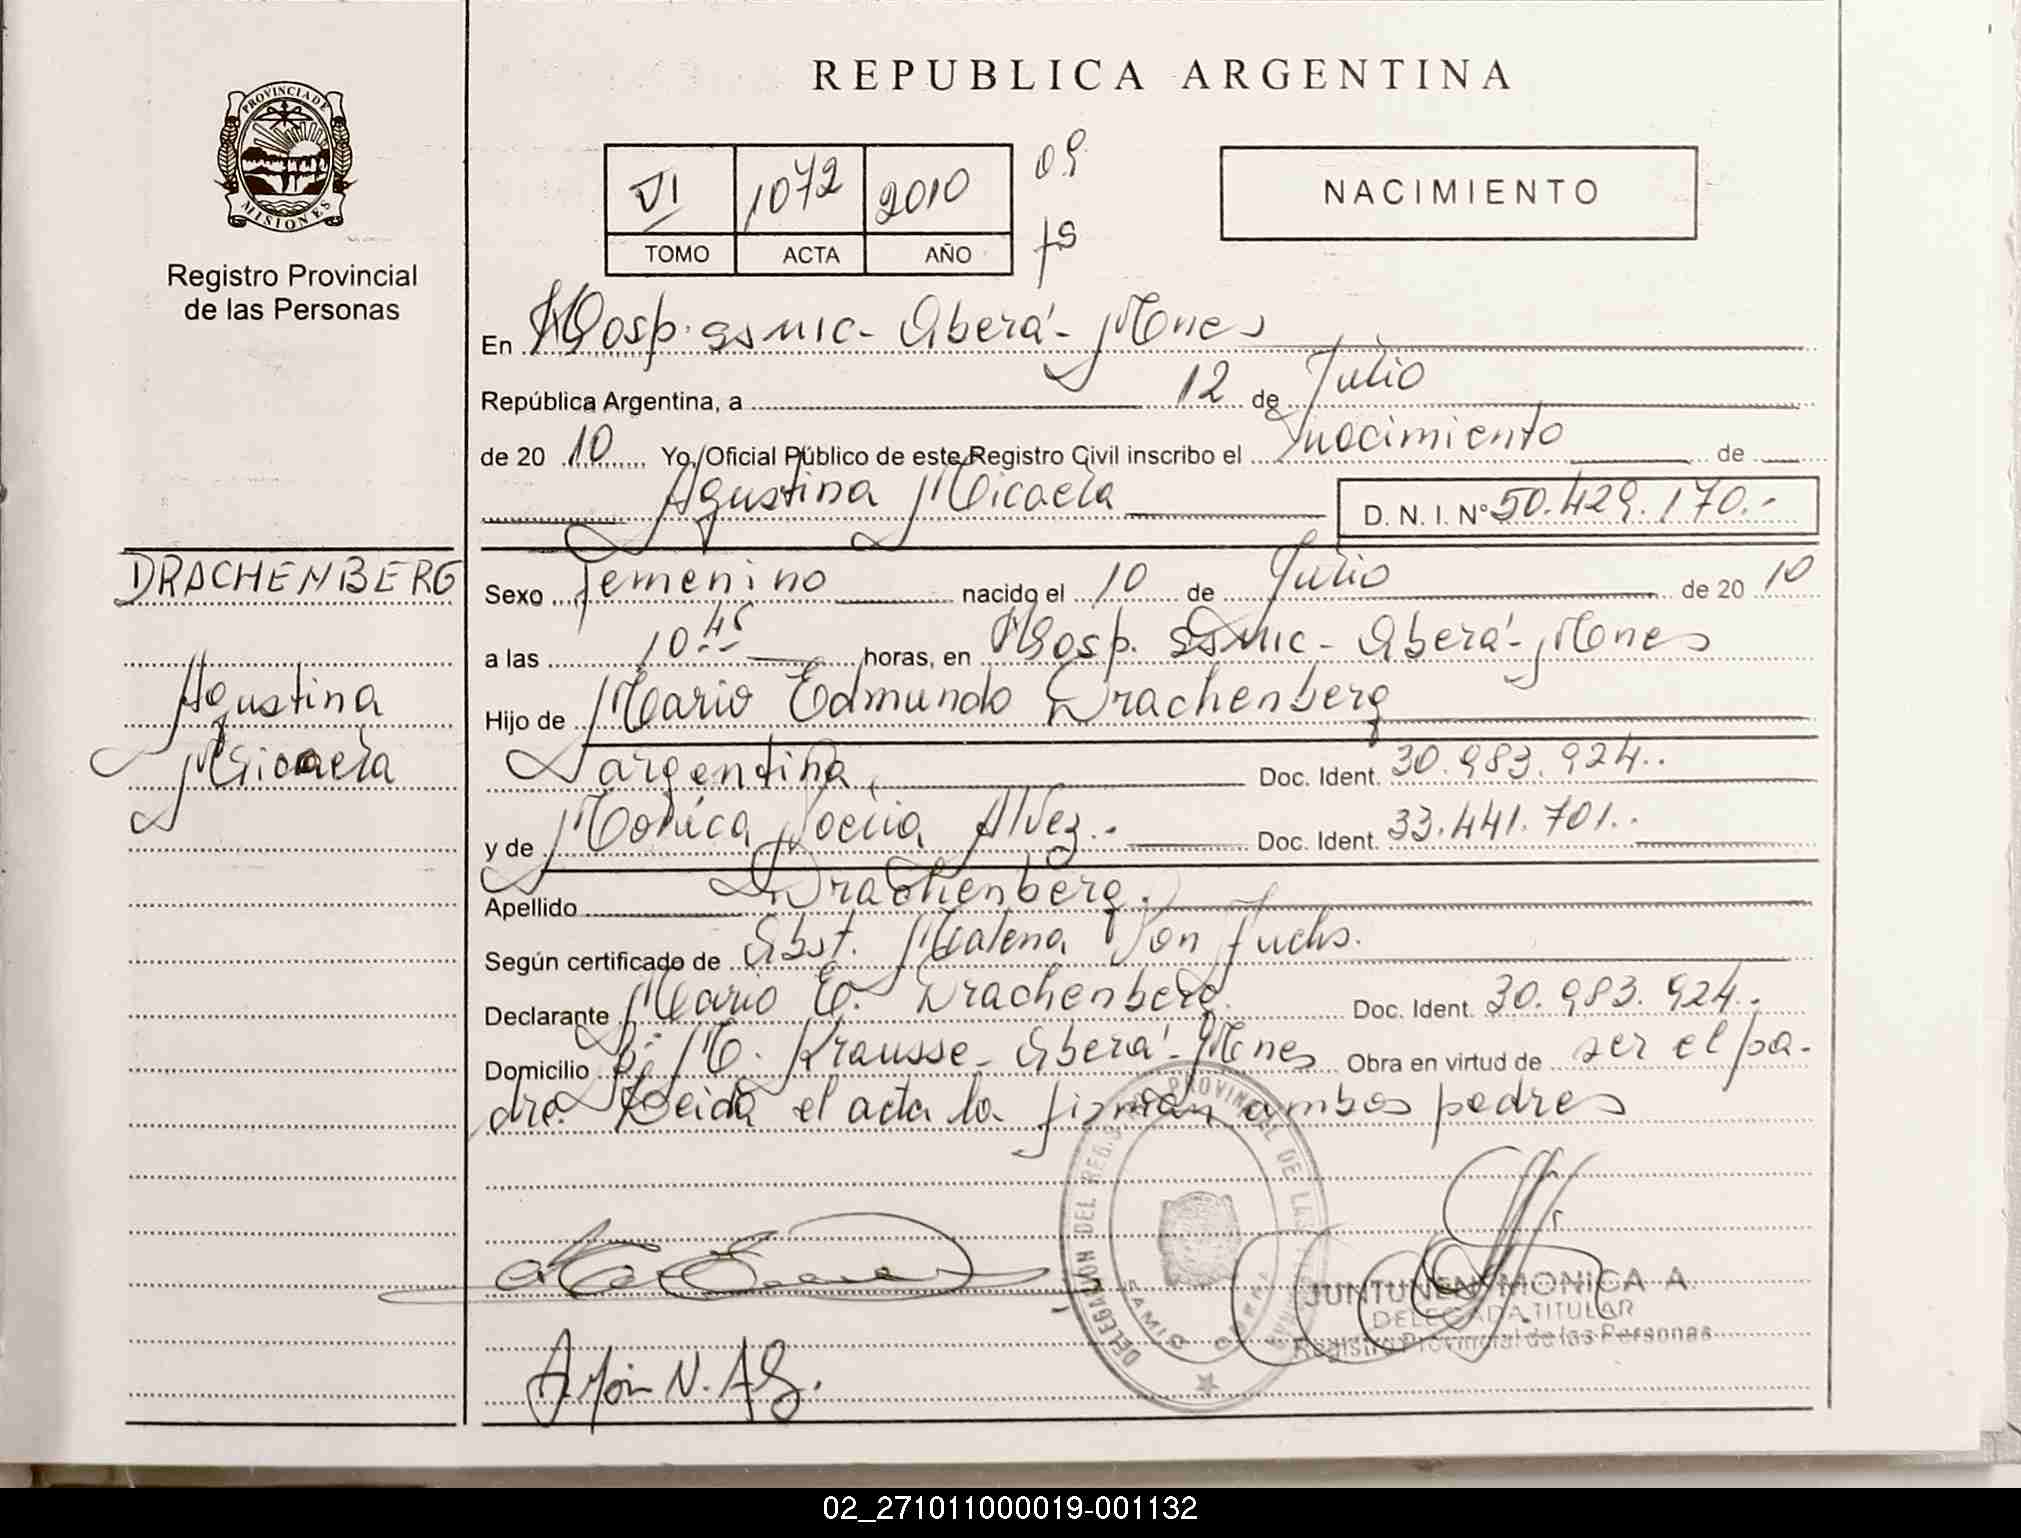 REPUBLICA ARGENTINA
PROVINCIA DE
MISIONES
Registro Provincial
de las Personas
VI 1072 2010 09
TOMO ACTA AÑO
NACIMIENTO
En Hosp. SSMIC - Oberá - Mnes
República Argentina, a 12 de Julio
de 2010 Yo, Oficial Público de este Registro Civil inscribo el nacimiento de
Agustina Micaela D. N. I. Nº 50.429.170.-
DRACHENBERG
Agustina
Micaela
Sexo femenino nacido el 10 de Julio de 2010
a las 10 45 horas, en Hosp. SSMIC - Oberá - Mnes
Hijo de Mario Edmundo Drachenberg
argentina Doc. Ident. 30.983.924..
y de Mónica Alvez.- Doc. Ident. 33.441.701..
Apellido Drachenberg.
Según certificado de Obst. Malena Von Fuchs.
Declarante Mario E. Drachenberg. Doc. Ident. 30.983.924..
Domicilio M. Krausse - Oberá - Mnes Obra en virtud de ser el pa-
dre. Leida el acta la firman ambos padres
DELEGACIÓN DEL REG. PROVINCIAL DE LAS
JUNTUNEN MONICA A
DELEGADA TITULAR
Registro Provincial de las Personas
02_271011000019-001132